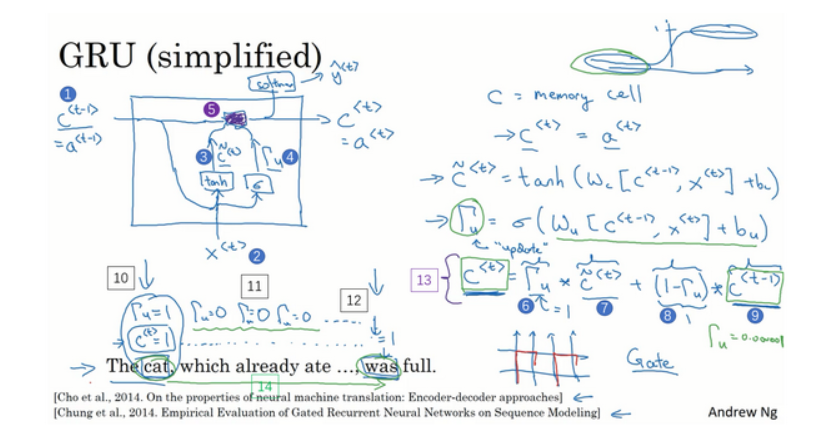 GRU (simplified)
softmax → ŷ^<t>
1
c^<t-1>
=a^<t-1>
5
c^<t>
=a^<t>
3 c̃^<t> Γu 4
tanh σ
x^<t> 2
1
c = memory cell
→ c^<t> = a^<t>
→ c̃^<t> = tanh (Wc [c^<t-1>, x^<t>] + bc)
→ Γu = σ (Wu [c^<t-1>, x^<t>] + bu)
"update"
13 c^<t> = Γu * c̃^<t> + (1-Γu) * c^<t-1>
6 =1 7 8 9
Γu = 0.000001
Gate
10 11 12
Γu=1 Γu=0 Γu=0 Γu=0 .....
→ c^<t>=1 .......... =1
→ The cat, which already ate ..., was full.
14
[Cho et al., 2014. On the properties of neural machine translation: Encoder-decoder approaches] ←
[Chung et al., 2014. Empirical Evaluation of Gated Recurrent Neural Networks on Sequence Modeling] ←
Andrew Ng